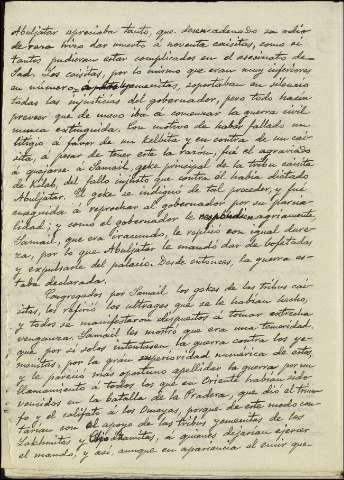 Abuljatar apreciaba tanto, que desencadenado su odio
de raza hizo dar muerto á noventa caisitas, como si
tantos pudieran estar complicados en el asesinato de
Sad. Los caisitas, por lo mismo que eran muy inferiores
en número á los yemenitas, soportaban en silencio
todas las injusticias del gobernador, pero todo hacía
prever que de nuevo iba á comenzar la guerra civil
nunca extinguida. Con motivo de haber fallado un
litigio á favor de un kelbita y en contra de un cai-
sita, á pesar de tener este la razón, fué el agraviado
á quejarse á Samail, jeke principal de la tribu caisita
de Kilab, del fallo injusto que contra él había dictado
Abuljatar. El jeke se indignó de tal proceder, y fué
enseguida á reprochar al gobernador por su parcia-
lidad; y como el gobernador le respondiera agriamente,
Samail, que era iracundo, le replicó con igual dure-
za, por lo que Abuljatar le mandó dar de bofetadas
y expulsarle del palacio. Desde entonces, la guerra es-
taba declarada.
Congregados por Samail los jekes de las tribus cai-
sitas, les refirió los ultrages que se le habían hecho,
y todos se manifestaron dispuestos á tomar estrecha
venganza. Samail les mostró que era una temeridad,
que por sí solos intentasen la guerra contra los ye-
menitas, por la gran superioridad numérica de éstos,
y le pareció más oportuno apellidar la guerra por un
llamamiento á todos los que en Oriente habían sido
vencidos en la batalla de la Pradera, que dió el triun-
fo y el califato á los Omeyas, porque de este modo con-
tarían con el apoyo de las tribus yemenitas de los
Lakhmitas y, á quienes dejarían ejercer
el mando, y así, aunque en apariencia el emir que-